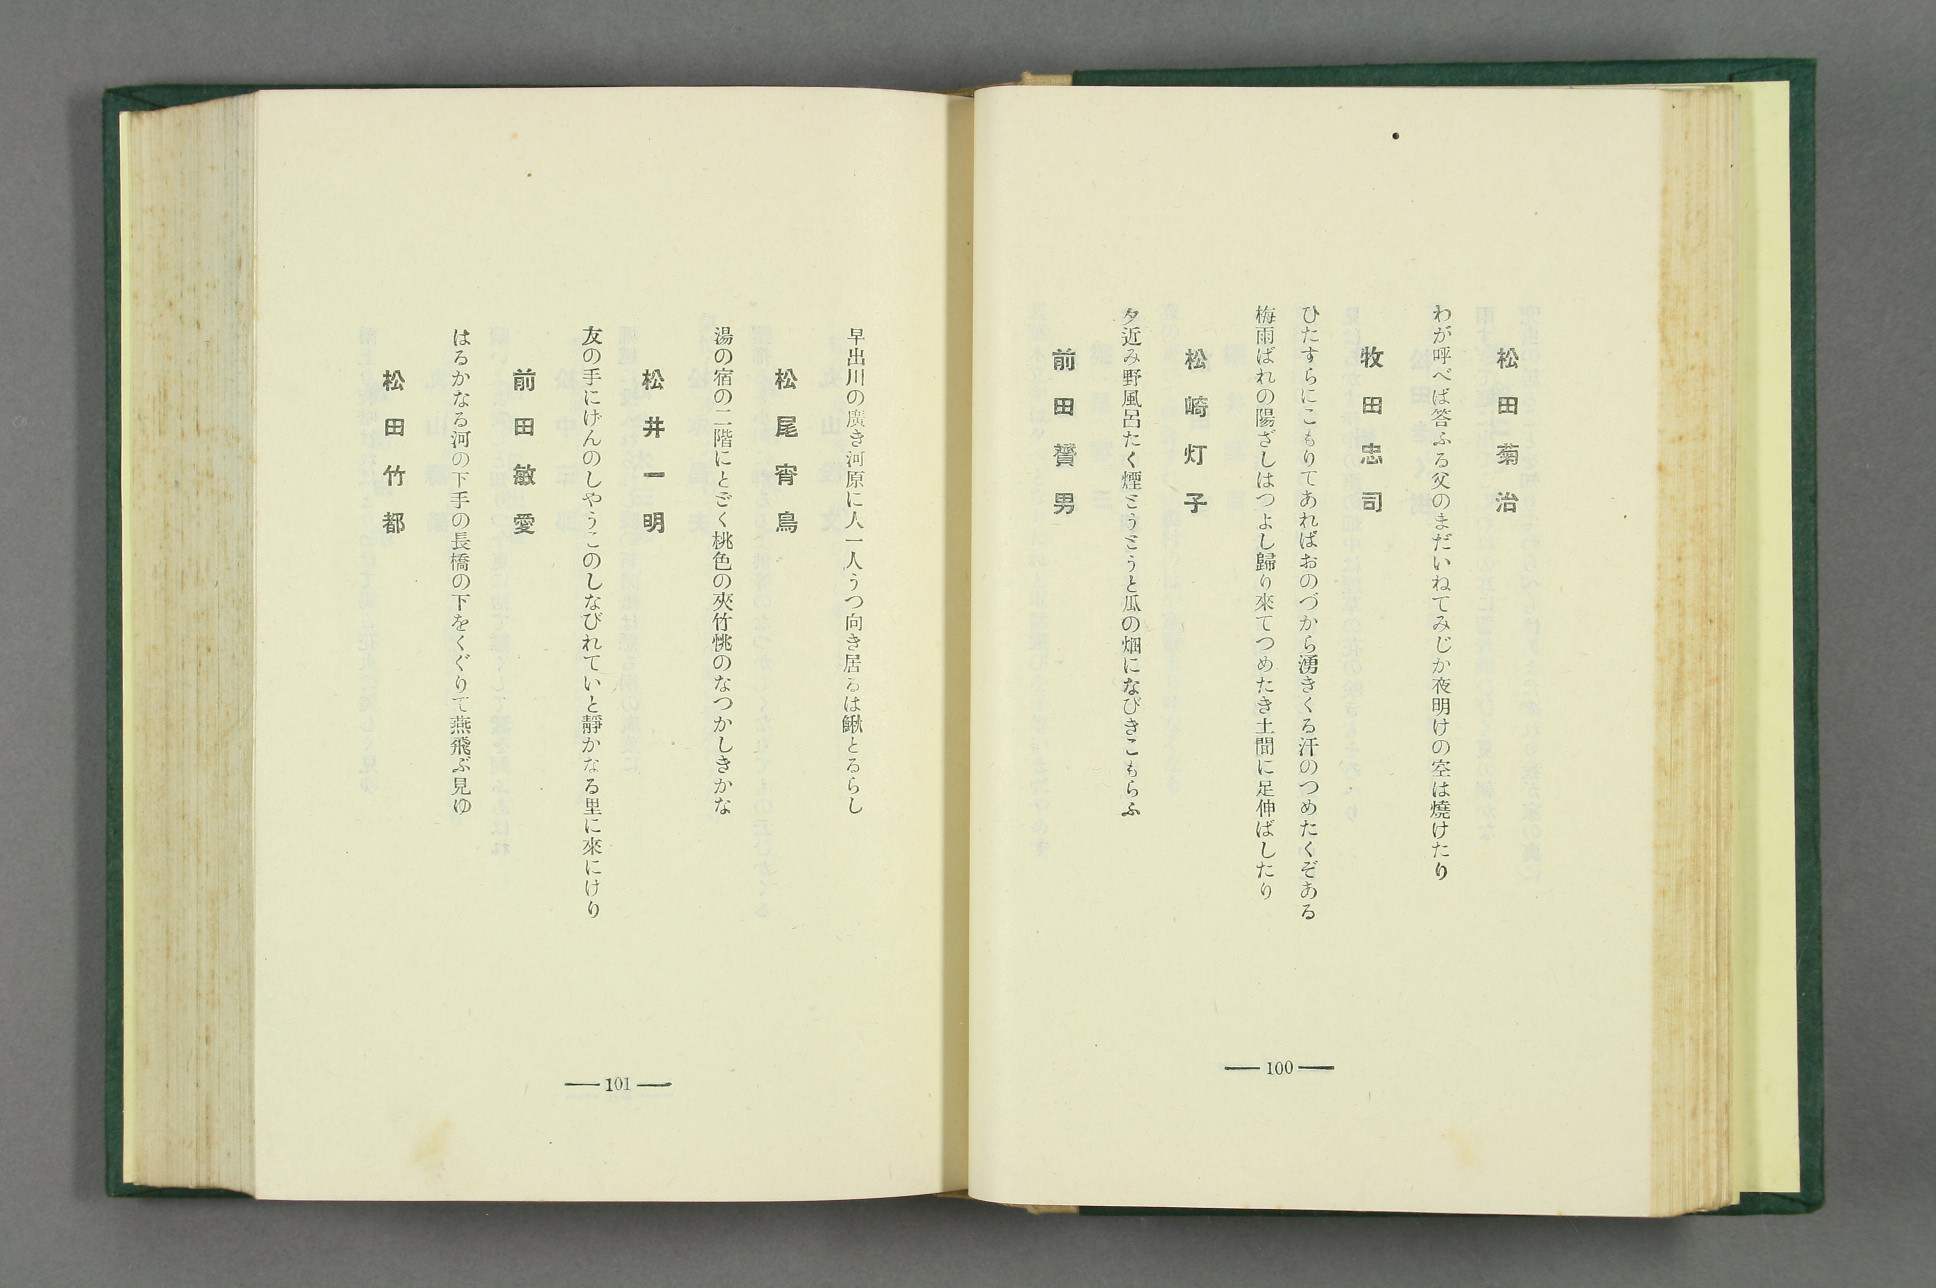 松田菊治
わが呼べば答ふる父のまだいねてみじか夜明けの空は燒けたり
牧田忠司
ひたすらにこもりてあればおのづから湧きくる汗のつめたくぞある
梅雨ばれの陽ざしはつよし歸り來てつめたき土間に足伸ばしたり
松崎灯子
夕近み野風呂たく煙とうとうと瓜の畑になびきこもらふ
前田贇男
— 100 —
早出川の廣き河原に人一人うつ向き居るは鰍とるらし
松尾宵鳥
湯の宿の二階にとゞく桃色の夾竹桃のなつかしきかな
松井一明
友の手にけんのしやうこのしなびれていと靜かなる里に來にけり
前田敏愛
はるかなる河の下手の長橋の下をくぐりて燕飛ぶ見ゆ
松田竹都
— 101 —